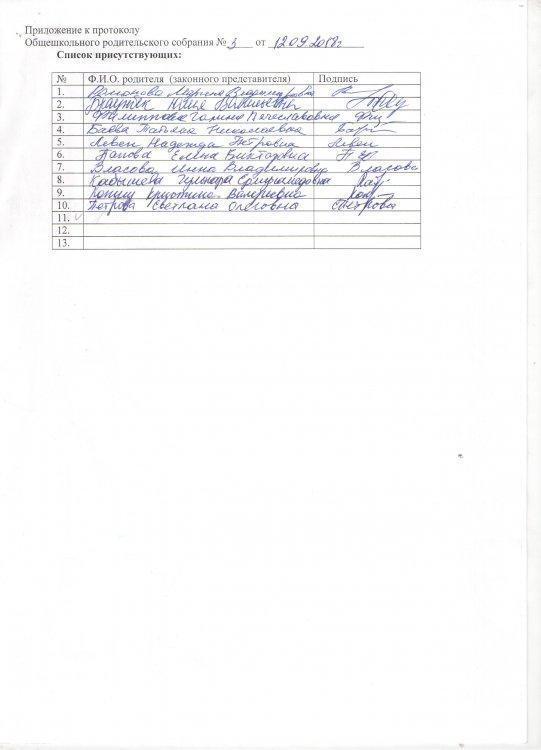 Приложение к протоколу
Общешкольного родительского собрания № 3 от 12.09.2018г
Список присутствующих:
№ Ф.И.О. родителя (законного представителя) Подпись
1. Романова Марина Владимировна
2. Юлия
3. Филиппова Галина Вячеславовна
4. Баева Татьяна Николаевна
5. Левен Надежда Петровна Левен
6. Попова Елена Викторовна
7. Власова Анна Владимировна Власова
8. Кадышева Гульнара
9. Кристина Валериевна
10. Петрова Светлана Олеговна Петрова
11.
12.
13.